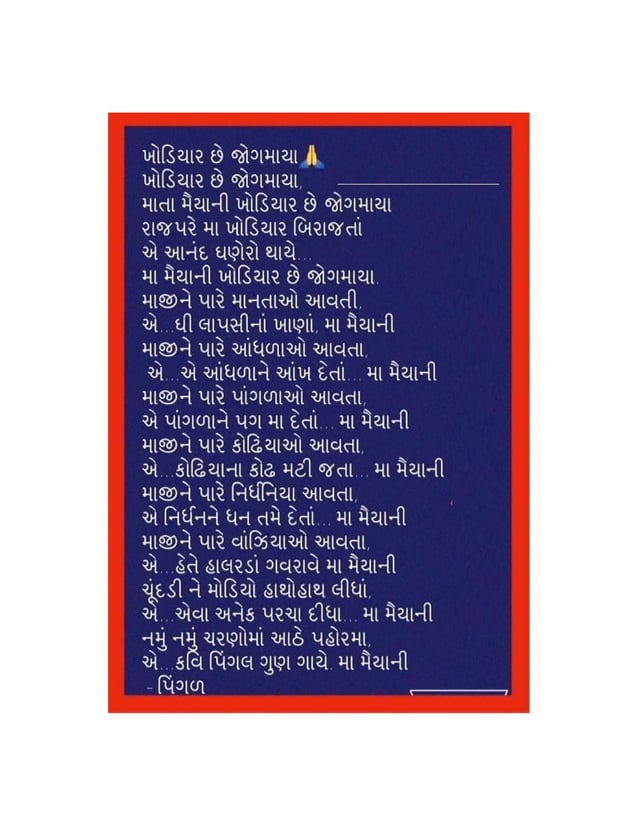 ખોડિયાર છે જોગમાયા🙏
ખોડિયાર છે જોગમાયા,
માતા મૈયાની ખોડિયાર છે જોગમાયા
રાજપરે મા ખોડિયાર બિરાજતાં
એ આનંદ ઘણેરો થાયે...
મા મૈયાની ખોડિયાર છે જોગમાયા.
માજીને પારે માનતાઓ આવતી,
એ...ઘી લાપસીનાં ખાણાં, મા મૈયાની
માજીને પારે આંધળાઓ આવતા,
એ...એ આંધળાને આંખ દેતાં... મા મૈયાની
માજીને પારે પાંગળાઓ આવતા,
એ પાંગળાને પગ મા દેતાં... મા મૈયાની
માજીને પારે કોઢિયાઓ આવતા,
એ...કોઢિયાના કોઢ મટી જતા... મા મૈયાની
માજીને પારે નિર્ધનિયા આવતા,
એ નિર્ધનને ધન તમે દેતાં... મા મૈયાની
માજીને પારે વાંઝિયાઓ આવતા,
એ...હેતે હાલરડાં ગવરાવે મા મૈયાની
ચૂંદડી ને મોડિયો હાથોહાથ લીધાં,
એ...એવા અનેક પરચા દીધા... મા મૈયાની
નમું નમું ચરણોમાં આઠે પહોરમા,
એ...કવિ પિંગલ ગુણ ગાયે. મા મૈયાની
- પિંગળ